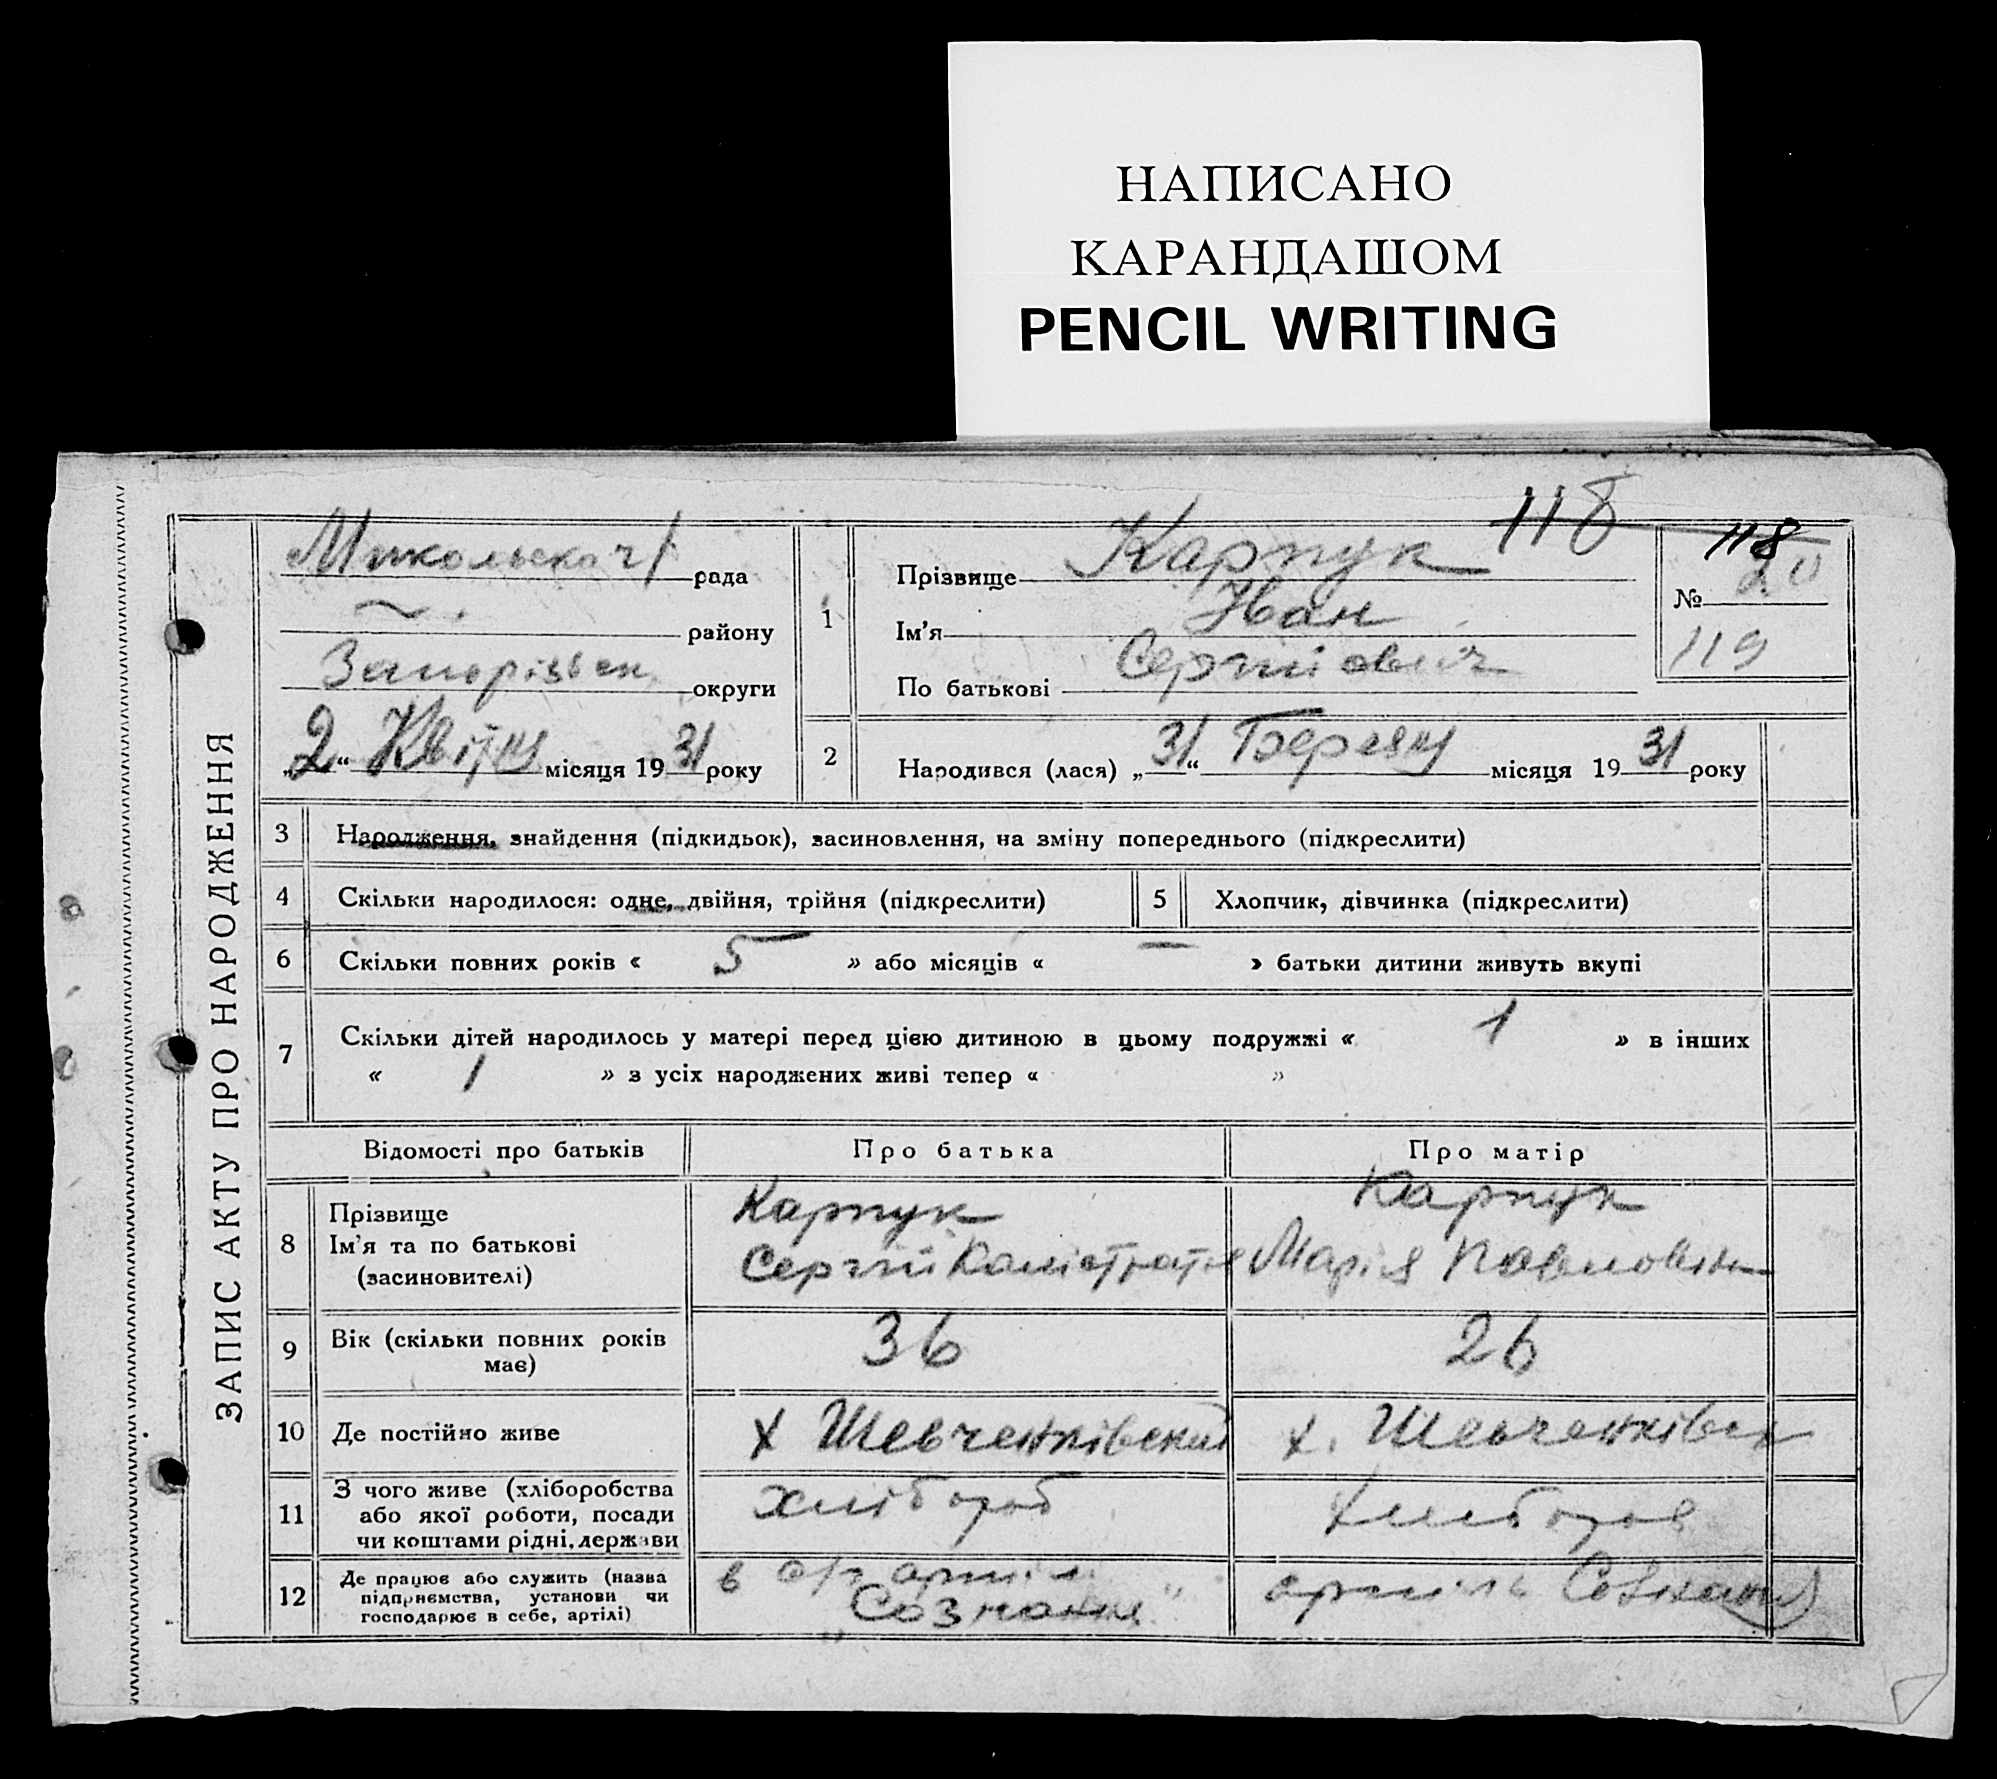 НАПИСАНО
КАРАНДАШОМ
PENCIL WRITING
ЗАПИС АКТУ ПРО НАРОДЖЕННЯ
рада
району
Запорізьк округи
„2“ Квітня місяця 1931 року
118
1 Прізвище Карпук
Ім'я Іван
По батькові Сергійович
118
№ 20
119
2 Народився (лася) „31“ Березня місяця 1931 року
3 Народження, знайдення (підкидьок), засиновлення, на зміну попереднього (підкреслити)
4 Скільки народилося: одне, двійня, трійня (підкреслити)
5 Хлопчик, дівчинка (підкреслити)
6 Скільки повних років « 5 » або місяців « — » батьки дитини живуть вкупі
7 Скільки дітей народилось у матері перед цією дитиною в цьому подружжі « 1 » в інших
« 1 » з усіх народжених живі тепер « »
Відомості про батьків Про батька Про матір
8 Прізвище
Ім'я та по батькові
(засиновителі)
Карпук
Сергій
Карпук
Марія Павловна
9 Вік (скільки повних років
має)
36
26
10 Де постійно живе
х Шевченківский
х. Шевченківск
11 З чого живе (хліборобства
або якої роботи, посади
чи коштами рідні, держави
хлібороб
12 Де працює або служить (назва
підприємства, установи чи
господарює в себе, артілі)
в
„Сознание“
артиль